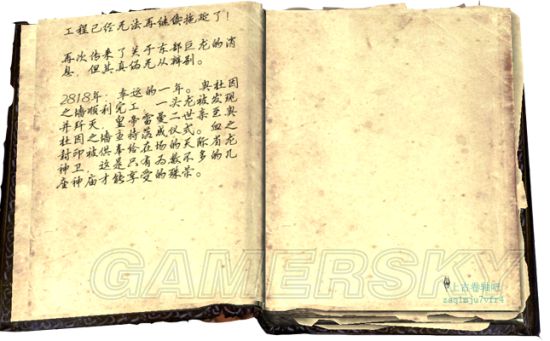 工程已经无法再继续拖延了！
再次传来了关于东部巨龙的消
息，但其真伪无从辨别。
2818年，幸运的一年。奥杜因
之墙顺利完工，一头龙被发现
并歼灭，皇帝雷曼二世亲至奥
杜因之墙主持落成仪式。血之
封印被供奉给在场的天际省龙
神卫，这是只有为数不多的几
座神庙才能享受的殊荣。
GAMERSKY
上古卷轴吧
zaq1mju7vfr4